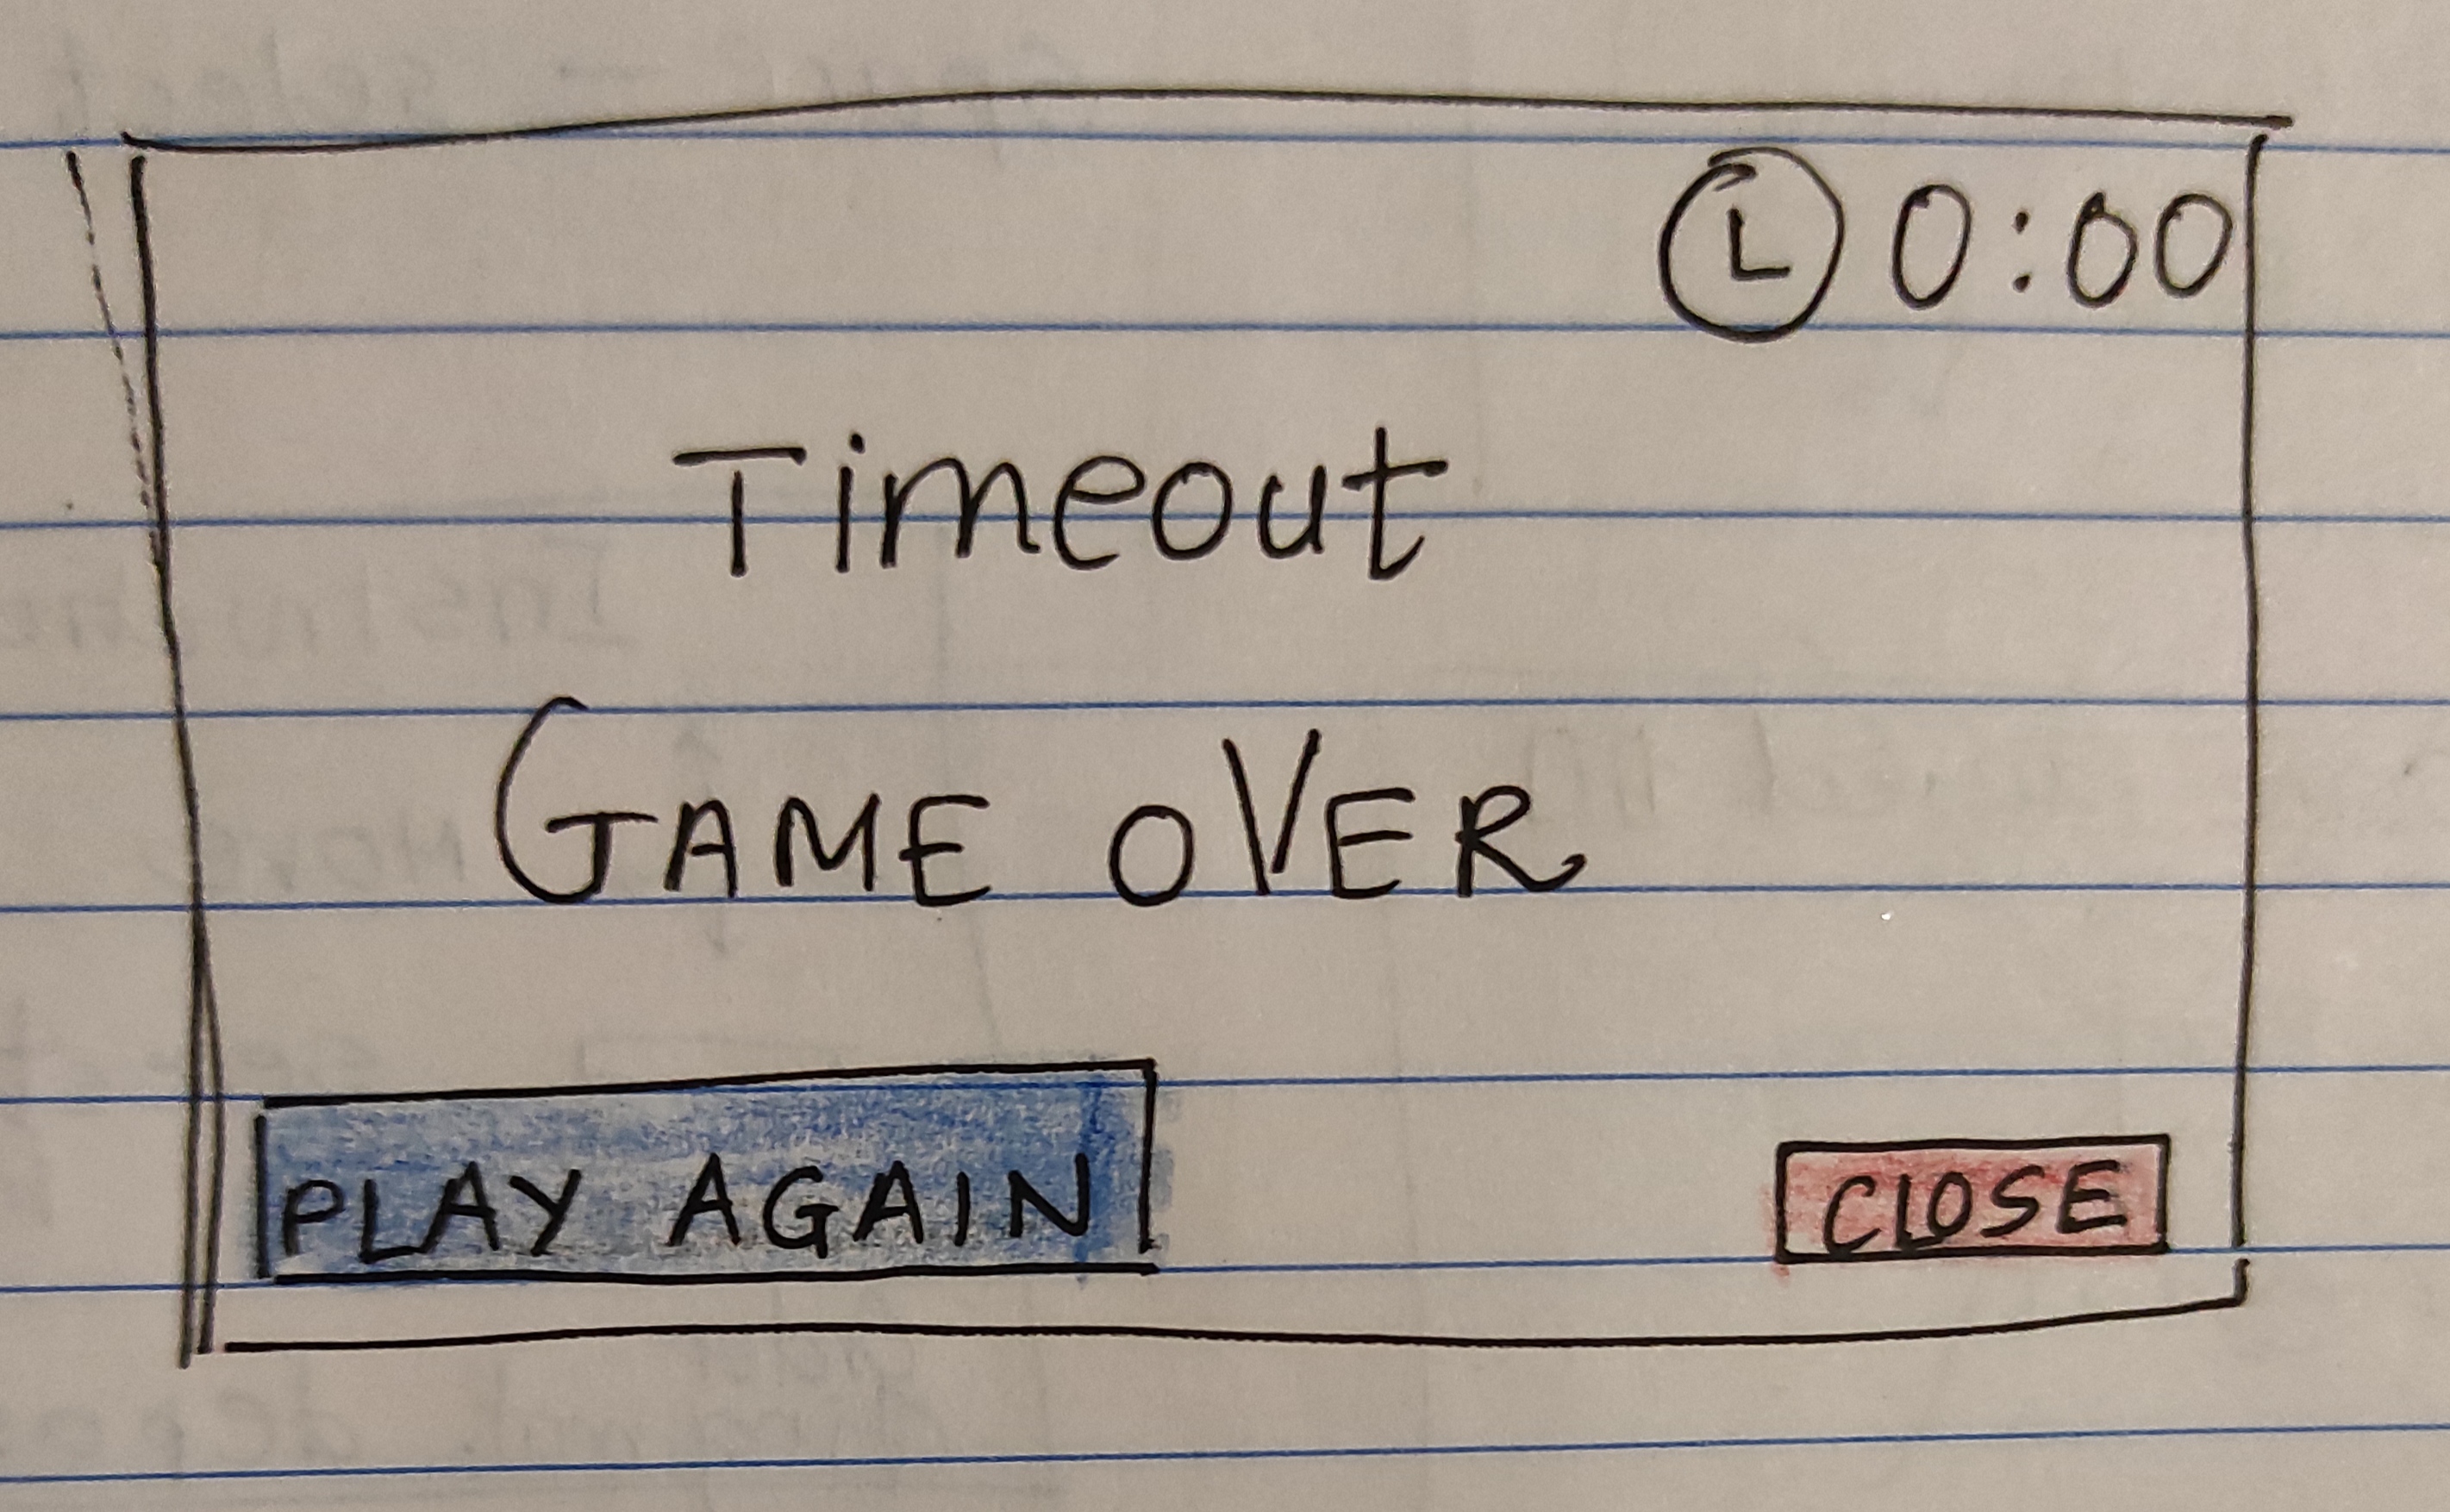 0:00
Timeout
GAME OVER
PLAY AGAIN
CLOSE